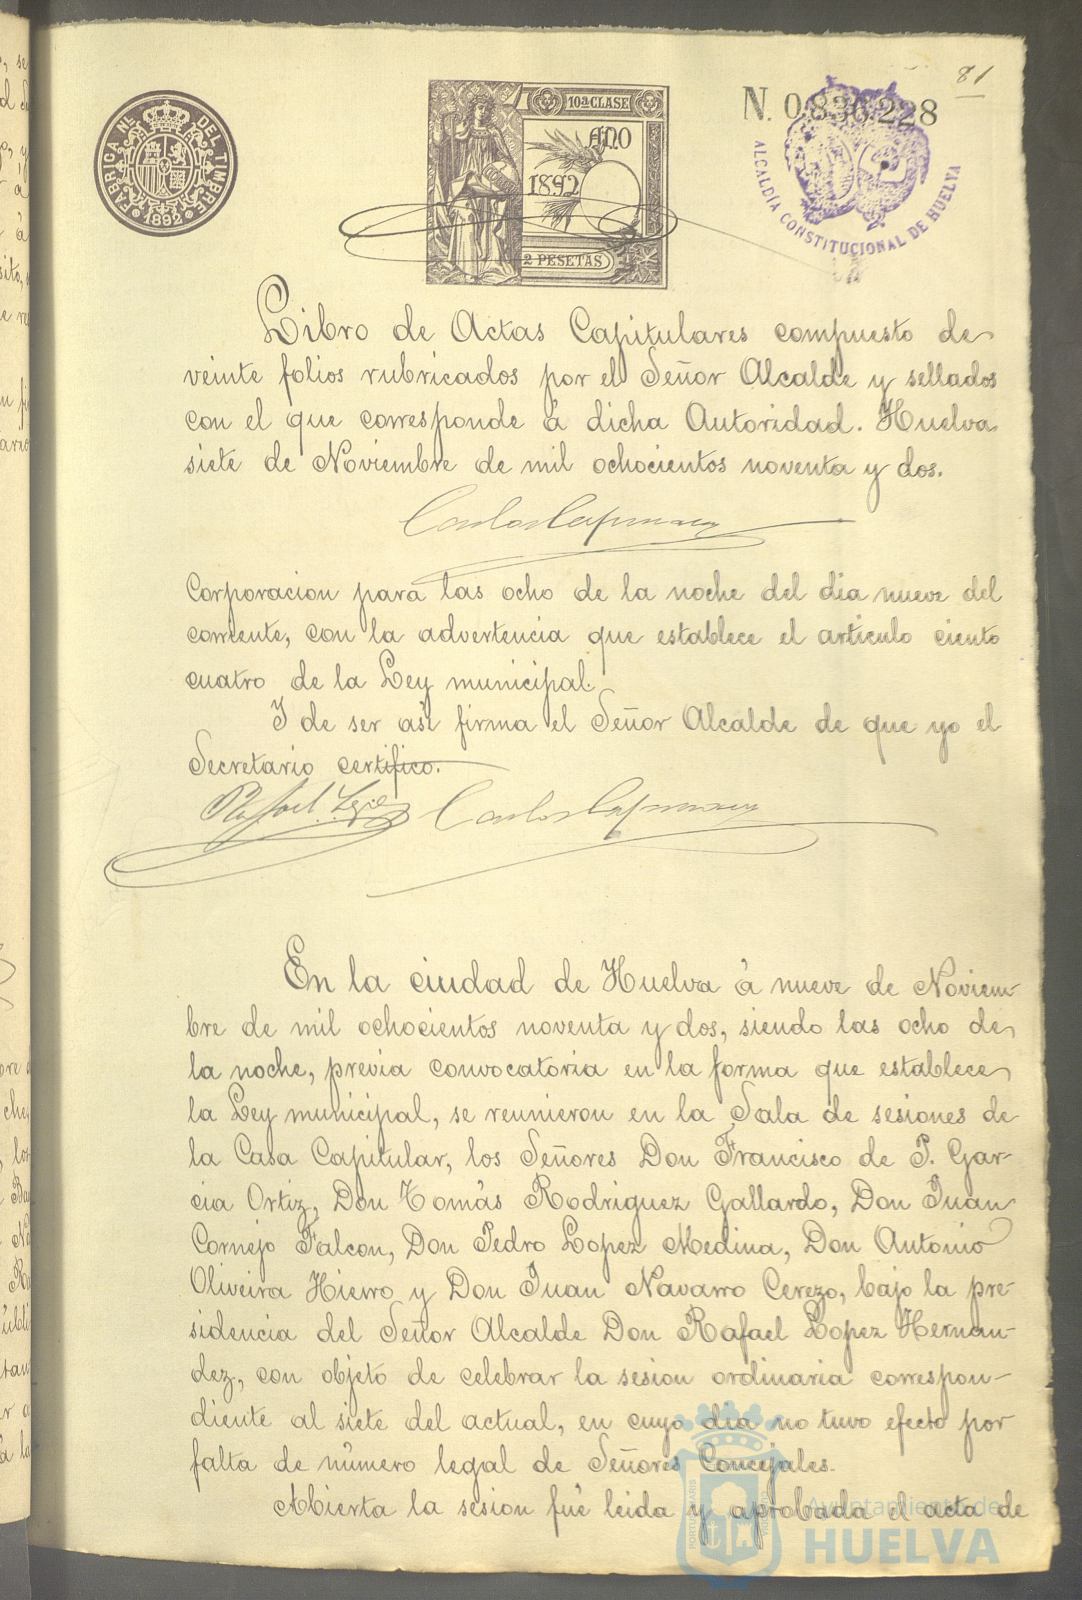 81
FABRICA NL. DEL TIMBRE
1892
10ª CLASE
AÑO
1892
2 PESETAS
N. 0.836.228
ALCALDÍA CONSTITUCIONAL DE HUELVA
Libro de Actas Capitulares compuesto de
veinte folios rubricados por el Señor Alcalde y sellados
con el que corresponde á dicha Autoridad. Huelva
siete de Noviembre de mil ochocientos noventa y dos.
Corporacion para las ocho de la noche del dia nueve del
corriente, con la advertencia que establece el articulo ciento
cuatro de la Ley municipal.
I de ser así firma el Señor Alcalde de que yo el
Secretario certifico.
En la ciudad de Huelva á nueve de Noviem-
bre de mil ochocientos noventa y dos, siendo las ocho de
la noche, previa convocatoria en la forma que establece
la Ley municipal, se reunieron en la Sala de sesiones de
la Casa Capitular, los Señores Don Francisco de P. Gar-
cia Ortiz, Don Tomás Rodriguez Gallardo, Don Juan
Cornejo Falcon, Don Pedro Lopez Medina, Don Antonio
Oliveira Hierro y Don Juan Navarro Cerezo, bajo la pre-
sidencia del Señor Alcalde Don Rafael Lopez Hernan-
dez, con objeto de celebrar la sesion ordinaria correspon-
diente al siete del actual, en cuyo dia no tuvo efecto por
falta de número legal de Señores Concejales.
Abierta la sesion fué leida y aprobada el acta de
Ayuntamiento de
HUELVA